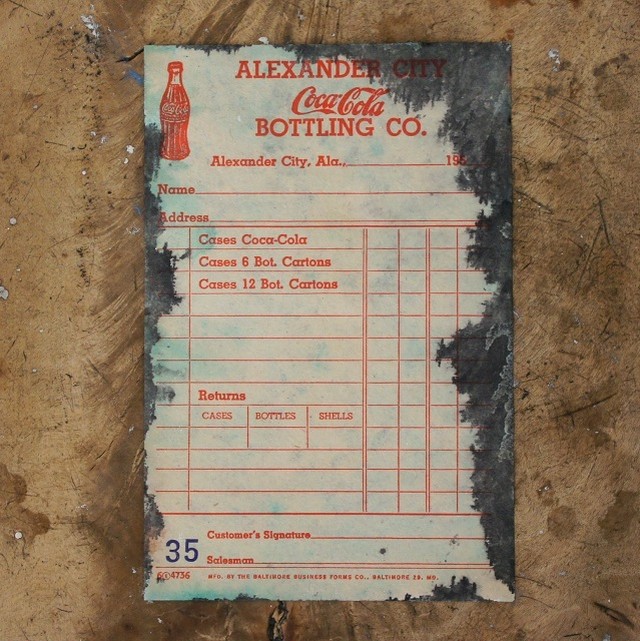 ALEXANDER CITY
Coca-Cola
BOTTLING CO.
Alexander City, Ala., 195
Name
Address
Cases Coca-Cola
Cases 6 Bot. Cartons
Cases 12 Bot. Cartons
Returns
CASES BOTTLES SHELLS
Customer's Signature
35
Salesman
4736 MFG. BY THE BALTIMORE BUSINESS FORMS CO., BALTIMORE 23, MD.